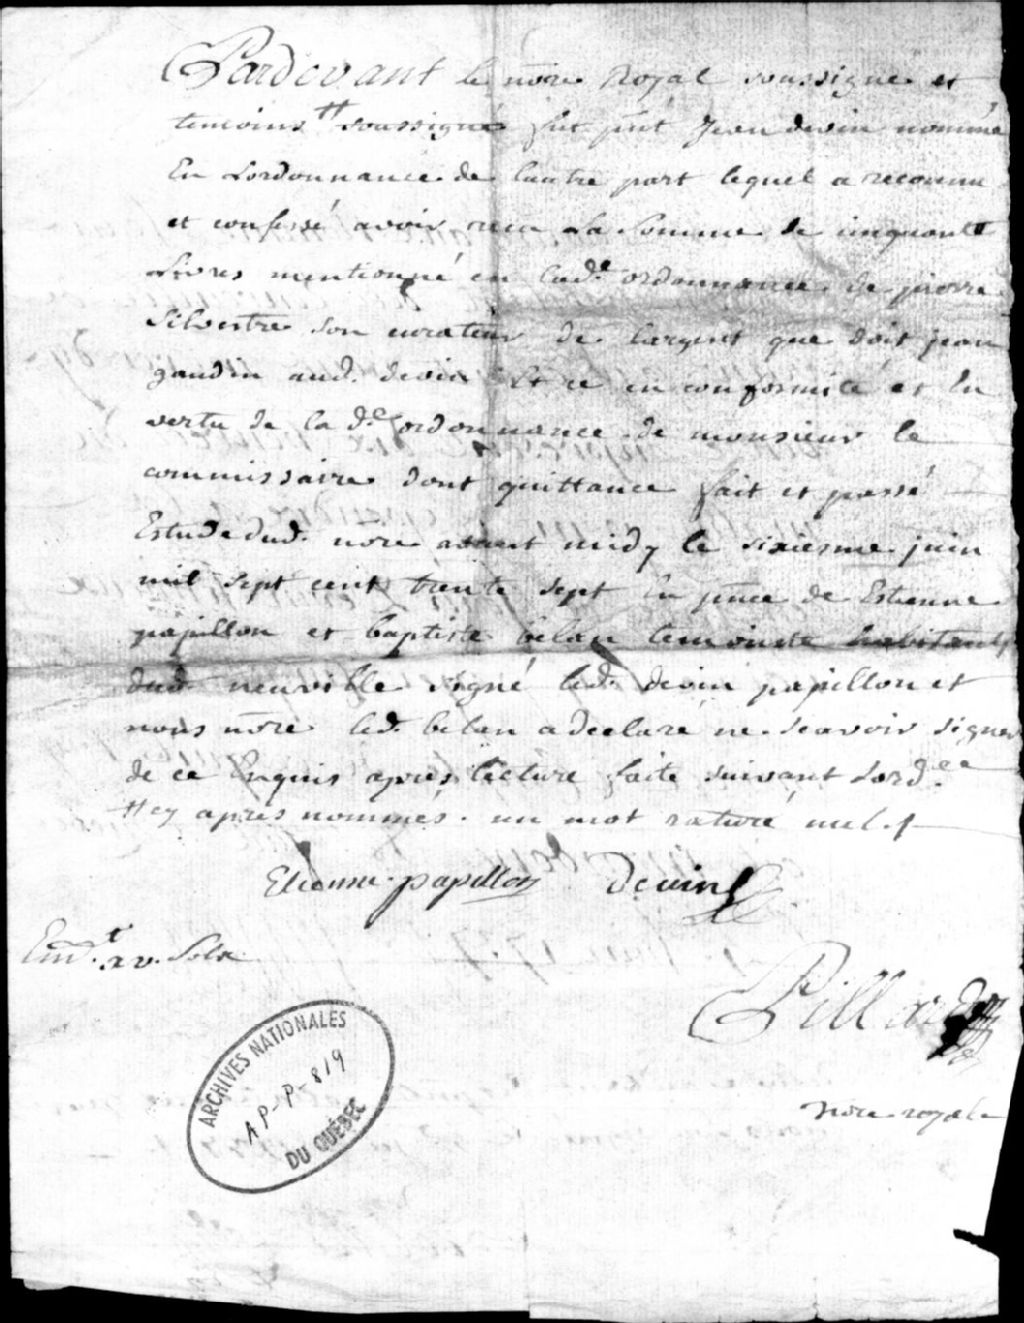 Pardevant le nore Royal soussigné et
temoins # soussigné fut pnt Jean devin nommé
En Lordonnance de lautre part lequel a reconnu
et confessé avoir receu La somme de cinquante
Livres mentionné en lade ordonnance de pierre
Silvestre son curateur de largent que doit jean
gaudin aud. devin Et ce en conformité et En
vertu de la de ordonnance de monsieur le
commissaire dont quittance fait et passé
Estude dud. nore avant midy le sixiesme juin
mil sept cent trente sept En pnce de Estienne
papillon et baptiste belan temoins habitants
dud. neuville signé led. devin papillon et
nous nore led. belan a declaré ne scavoir signer
de ce Enquis apres lecture faite suivant Lordce
# cy apres nommés. un mot raturé nul
Etienne papillon devin
Em.t xv. Solz
Pillard
Nore royale
ARCHIVES NATIONALES
AP-P-819
DU QUÉBEC